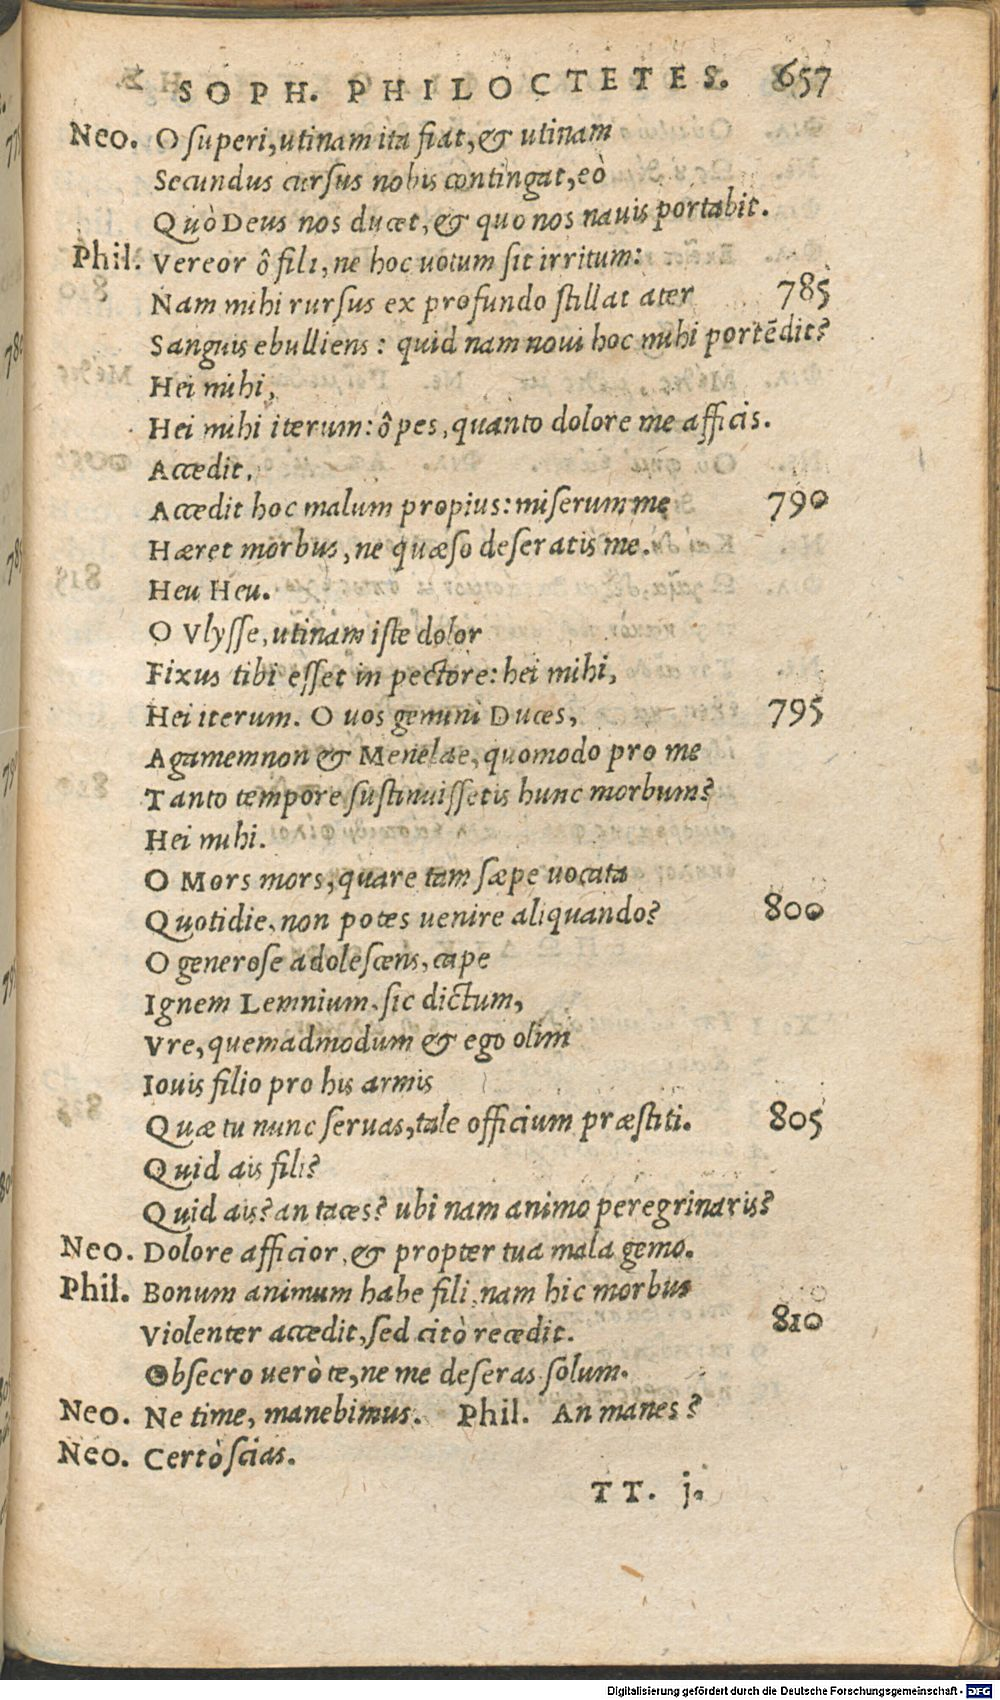 SOPH. PHILOCTETES. 657
Neo. O ſuperi, utinam ita fiat, & utinam
Secundus curſus nobis contingat, eò
Quò Deus nos ducet, & quo nos nauis portabit.
Phil. Vereor ô fili, ne hoc uotum ſit irritum:
Nam mihi rurſus ex profundo ſtillat ater 785
Sanguis ebulliens: quid nam noui hoc mihi portēdit?
Hei mihi,
Hei mihi iterum: ô pes, quanto dolore me afficis.
Accedit,
Accedit hoc malum propius: miserum me 790
Hæret morbus, ne quæſo deſeratis me.
Heu Heu.
O Vlyſſe, utinam iſte dolor
Fixus tibi eſſet in pectore: hei mihi,
Hei iterum. O uos gemini Duces, 795
Agamemnon & Menelae, quomodo pro me
Tanto tempore ſuſtinuiſſetis hunc morbum?
Hei mihi.
O Mors mors, quare tam ſæpe uocata
Quotidie, non potes uenire aliquando? 800
O generoſe adoleſcens, cape
Ignem Lemnium, ſic dictum,
Vre, quemadmodum & ego olim
Iouis filio pro his armis
Quæ tu nunc ſeruas, tale officium præſtiti. 805
Quid ais fili?
Quid ais? an taces? ubi nam animo peregrinaris?
Neo. Dolore afficior, & propter tua mala gemo.
Phil. Bonum animum habe fili, nam hic morbus
Violenter accedit, ſed citò recedit. 810
Obsecro verò te, ne me deſeras ſolum.
Neo. Ne time, manebimus. Phil. An manes?
Neo. Certò ſcias.
TT. j.
Digitalisierung gefördert durch die Deutsche Forschungsgemeinschaft - DFG